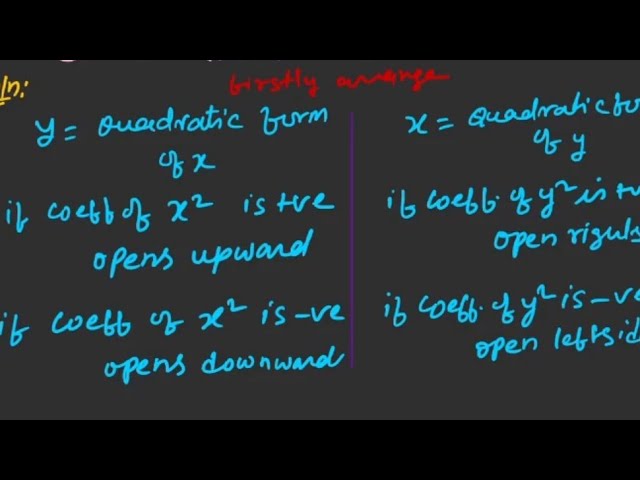 ln:
firstly arrange
y = quadratic form
of x
if coeff of x² is +ve
opens upward
if coeff of x² is -ve
opens downward
x = quadratic fo
of y
if coeff. of y² is +v
open
if coeff. of y² is -ve
open leftsid